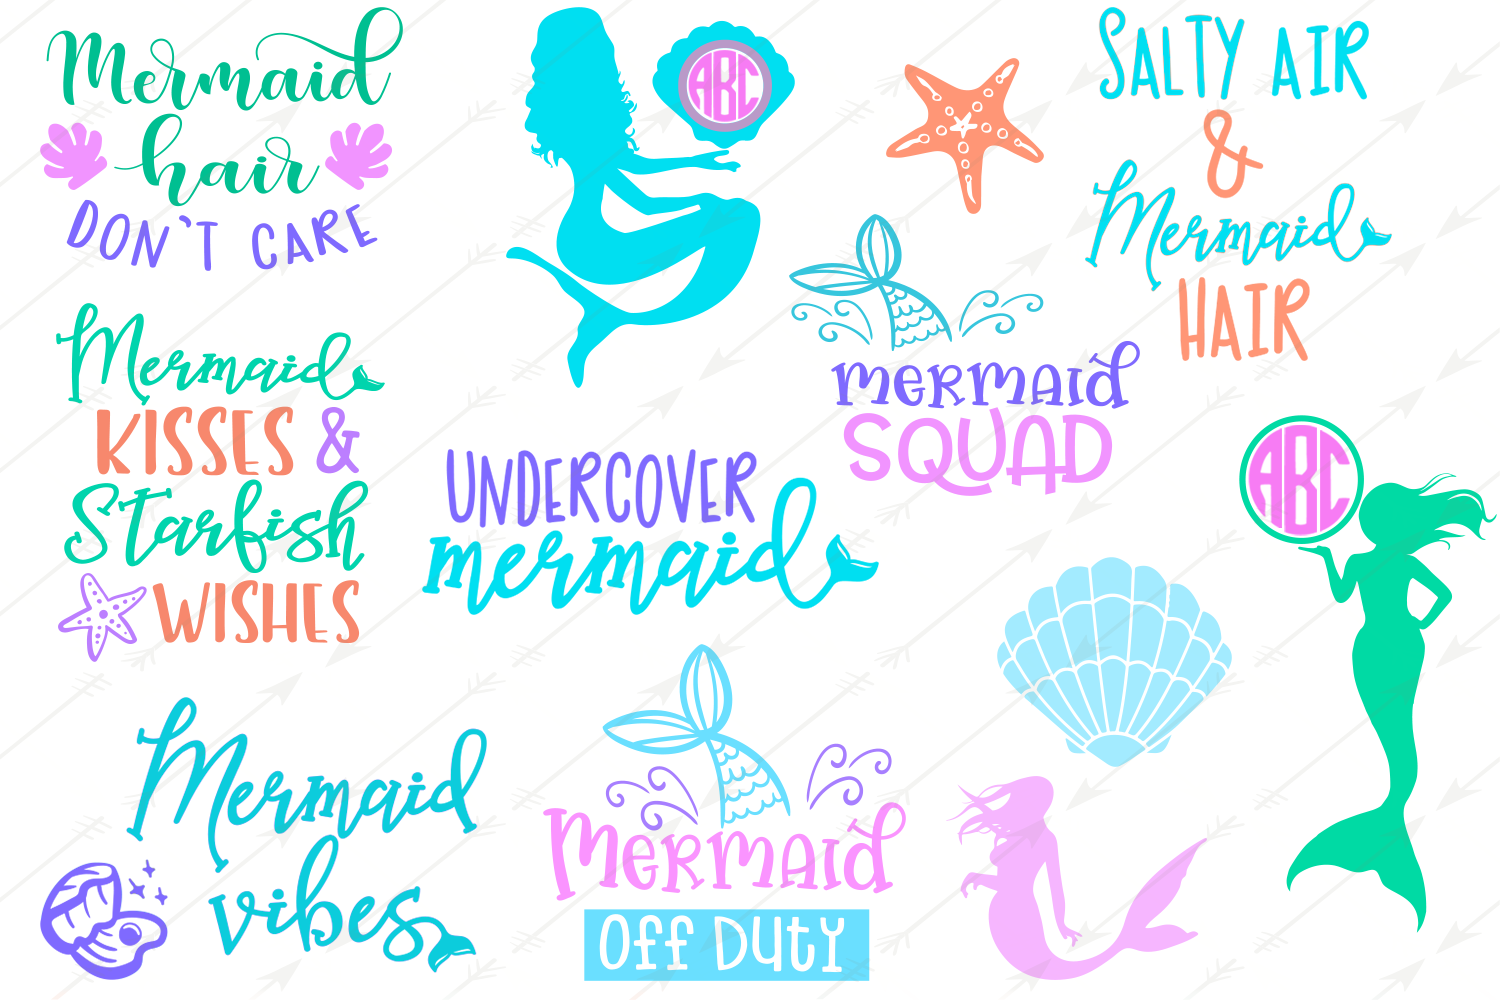 Mermaid
hair
DON'T CARE
ABC
SALTY AIR
&
Mermaid
HAIR
Mermaid
KISSES &
Starfish
WISHES
mermaid
SQUAD
UNDERCOVER
mermaid
ABC
Mermaid
vibes
Mermaid
Off Duty